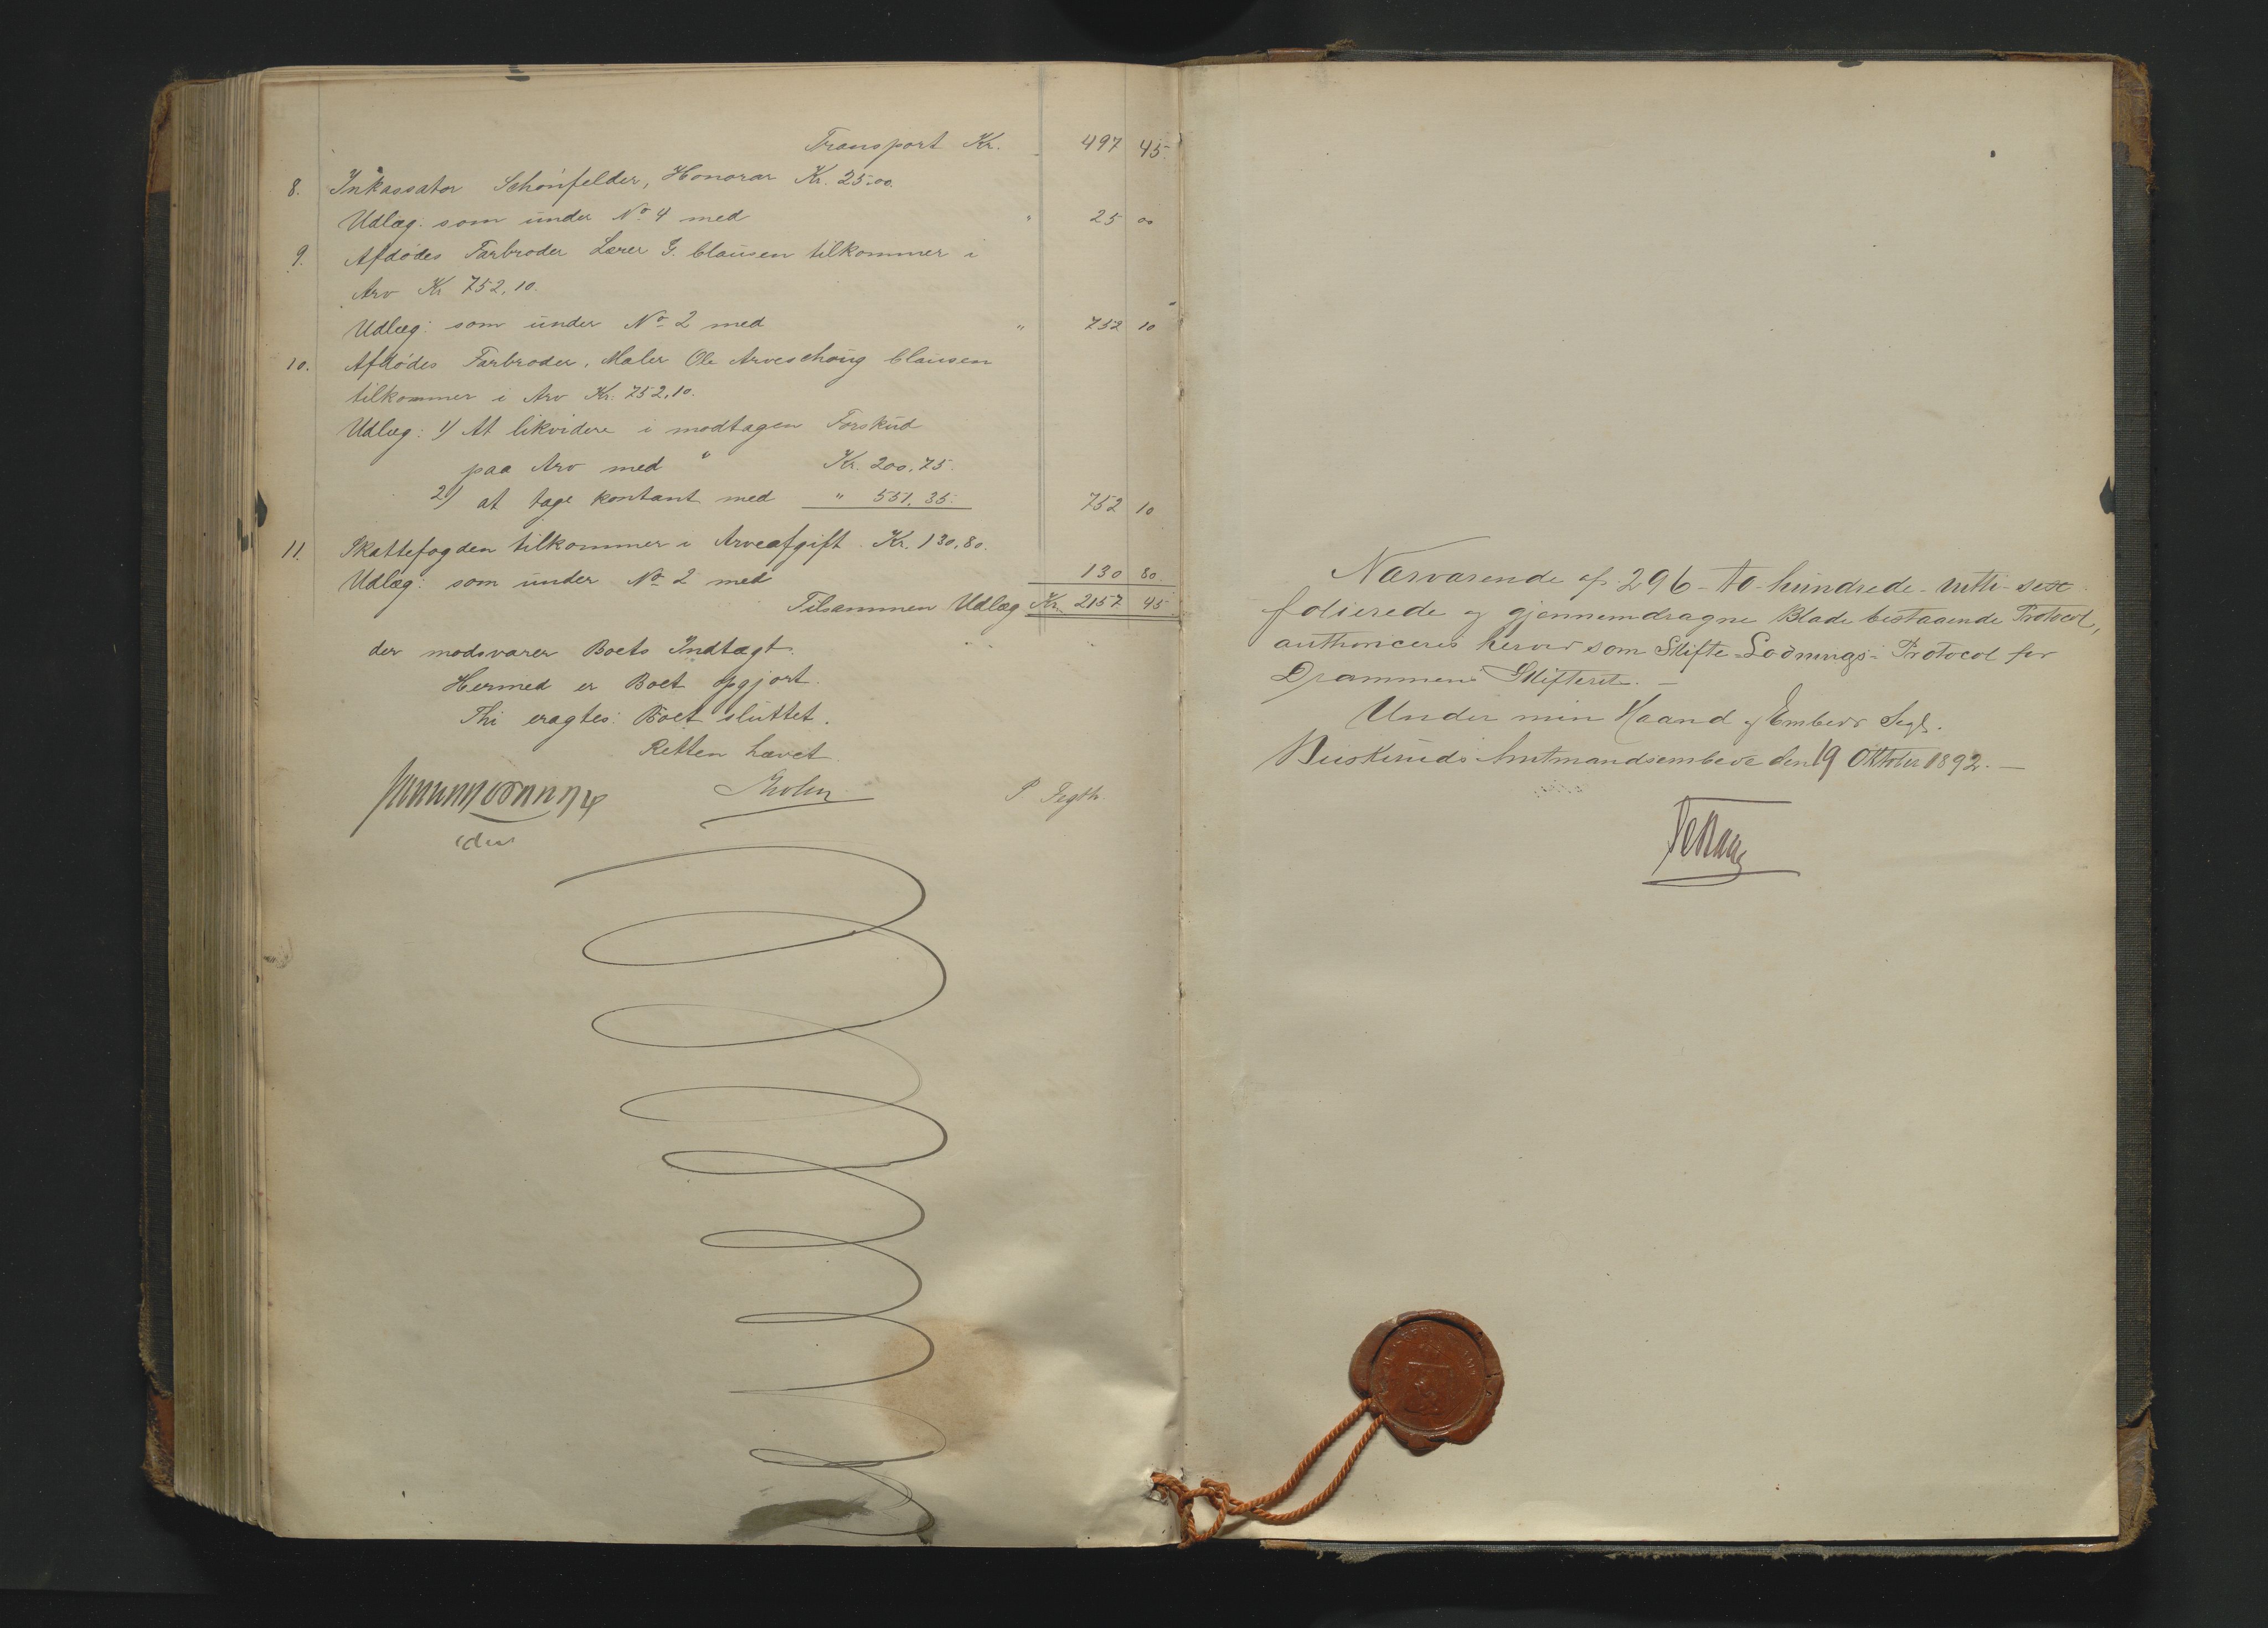 Transport Kr. 497 45.
8. Inkassator Schönfelder, Honorar Kr. 25.00.
Udlæg: som under No 4 med " 25 00
9. Afdødes Farbroder Lærer G. Clausen tilkommer i
Arv Kr 752,10.
Udlæg: som under No 2 med " 752 10
10. Afdødes Farbroder, Maler Ole Arveschoug Clausen
tilkommer i Arv Kr. 752,10.
Udlæg: 1) At likvidere i modtagen Forskud
paa Arv med Kr. 200,75.
2) at tage kontant med " 551. 35. 752 10
11. Skattefogden tilkommer i Arveafgift Kr. 130,80.
Udlæg: som under No 2 med 130 80.
Tilsammen Udlæg Kr. 2157 45
der modsvarer Boets Indtægt.
Hermed er Boet opgjort.
Thi eragtes: Boet sluttet.
Retten hævet.
Holm
P
Nærværende af 296 - to-hundrede-nitti-sex
folierede og gjennemdragne Blade bestaaende Protocol,
authoriceres herved som Skifte-Lodnings-Protocol for
Drammens Skifteret. -
Under min Haand og Embeds Segl.
Buskeruds Amtmandsembede den 19 Oktober 1892. -